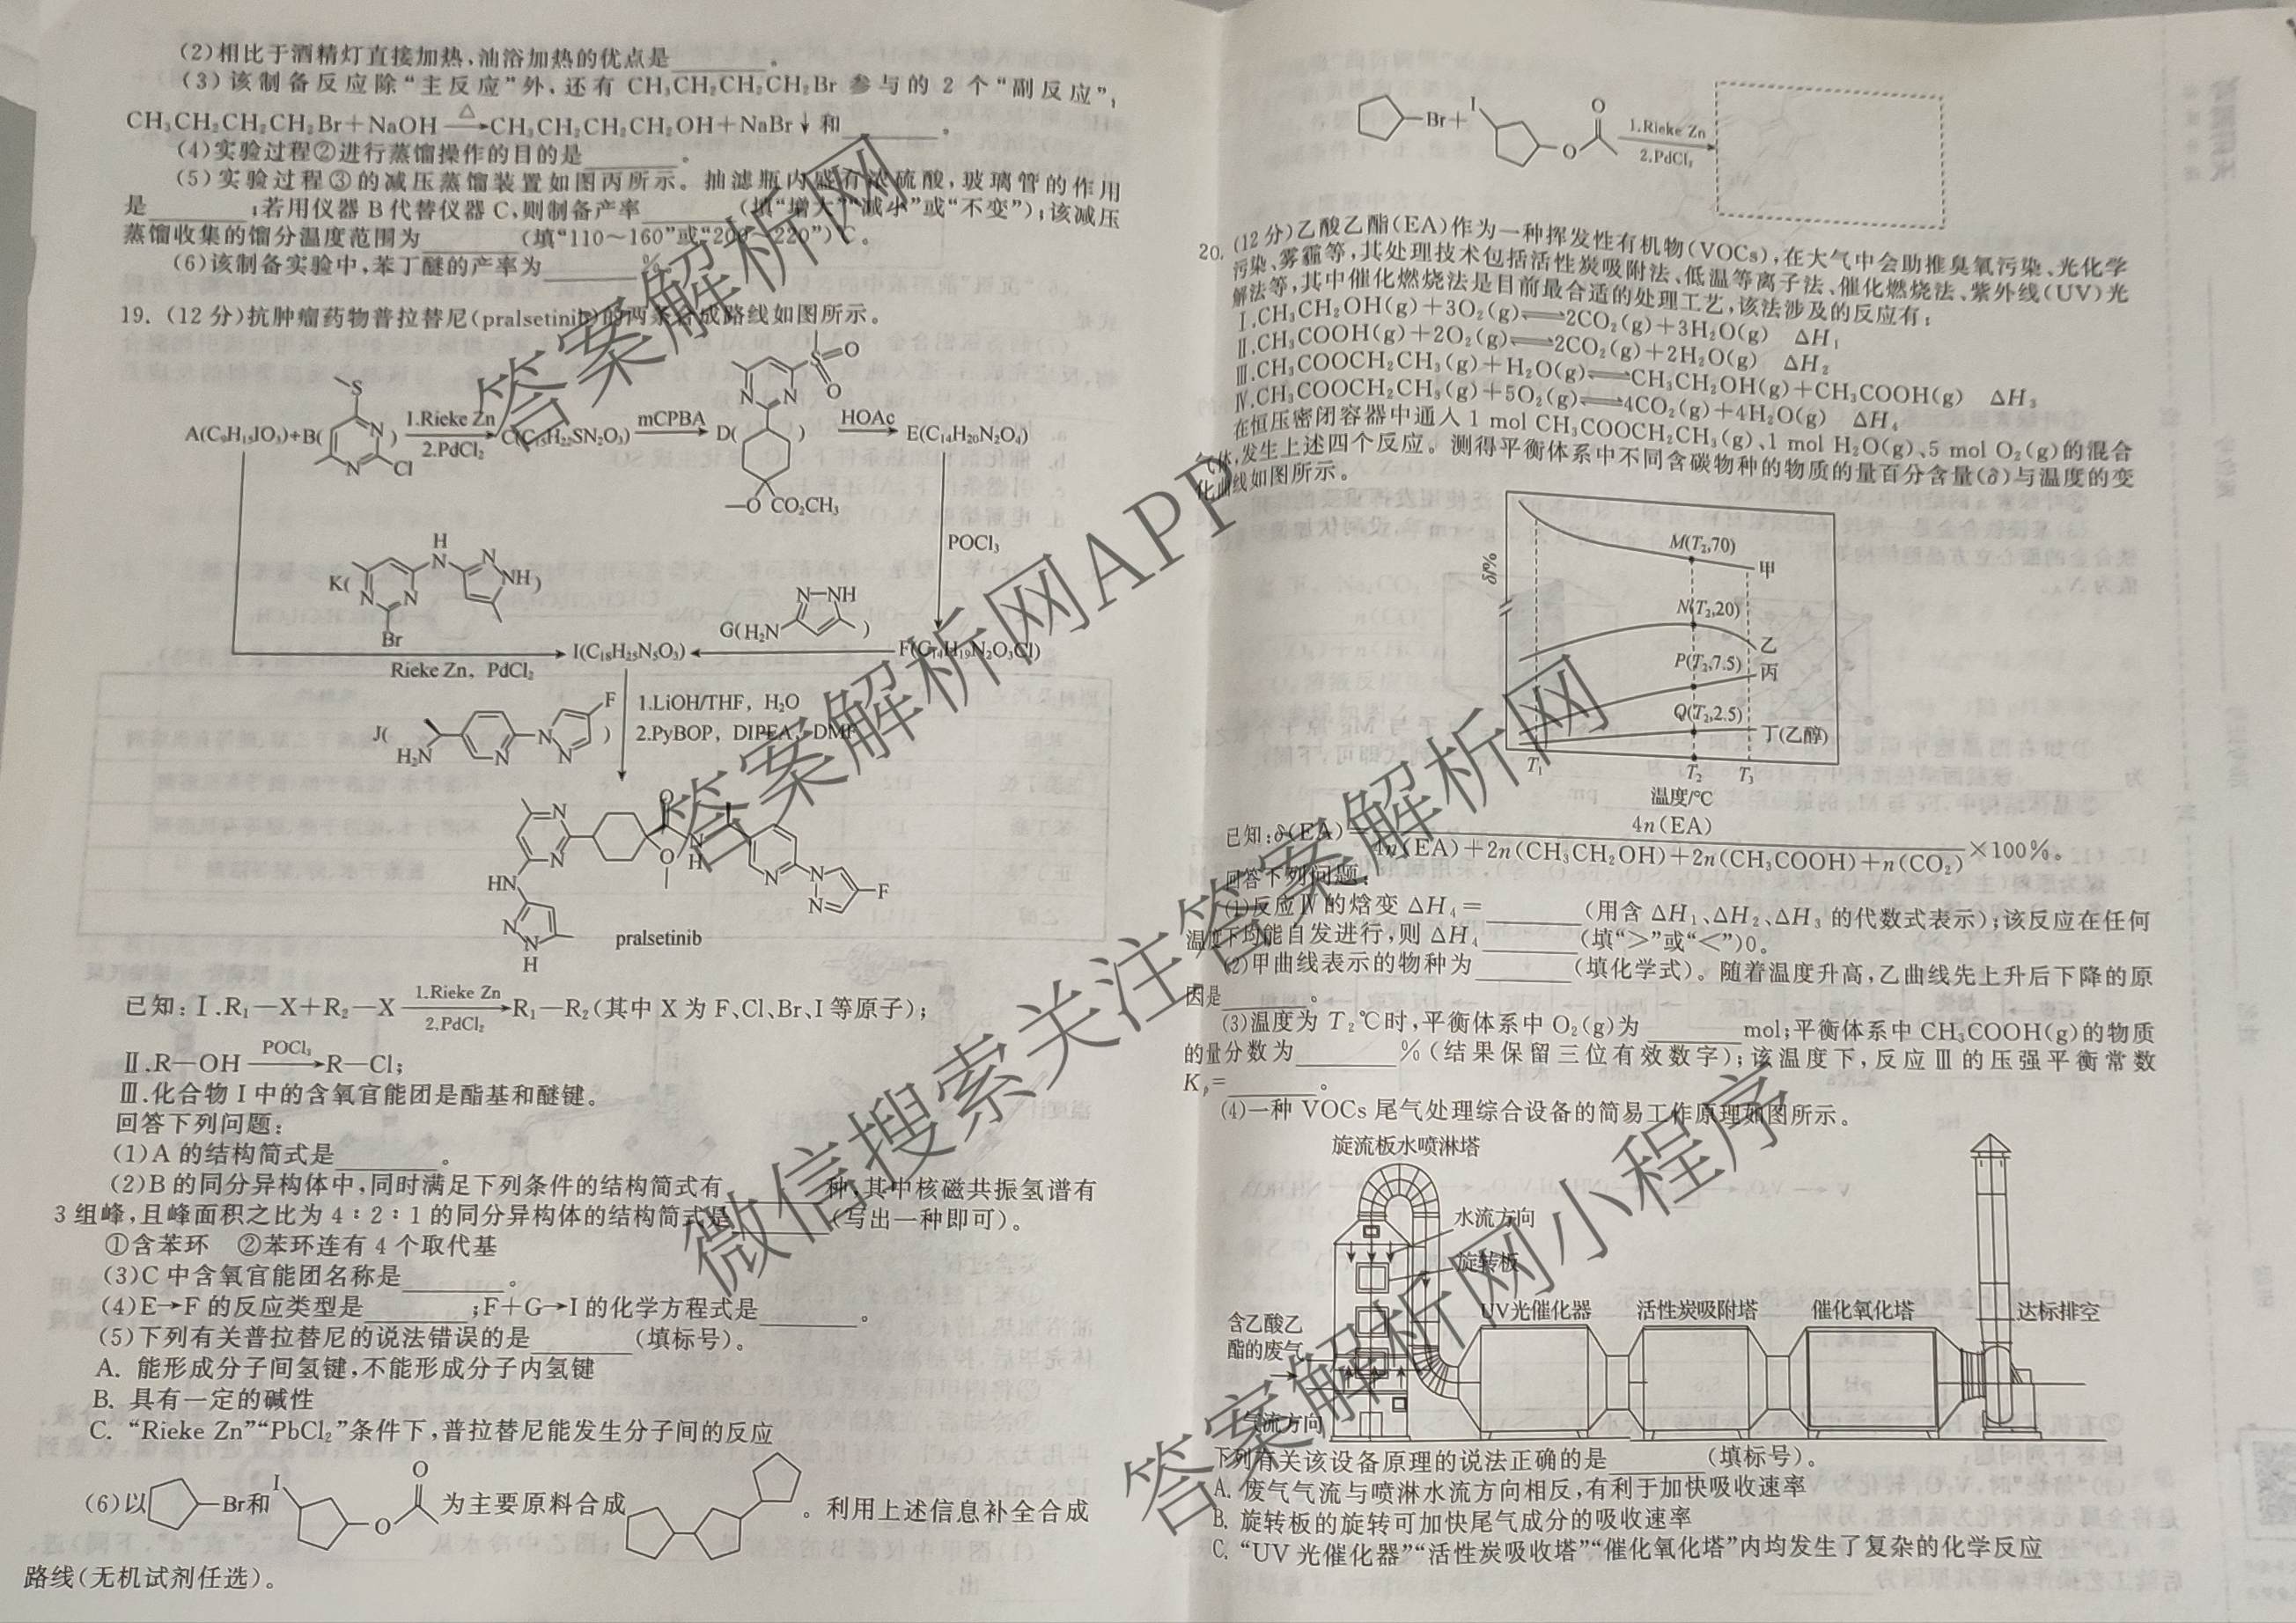 (2)相比于酒精灯直接加热,油浴加热的优点是________。
(3)该制备反应除“主反应”外,还有 CH₃CH₂CH₂CH₂Br 参与的 2 个“副反应”:
CH₃CH₂CH₂CH₂Br+NaOH —△→CH₃CH₂CH₂CH₂OH+NaBr↓和________。
(4)实验过程②进行蒸馏操作的目的是________。
(5)实验过程③的减压蒸馏装置如图丙所示。抽滤瓶内盛有浓硫酸,玻璃管的作用
是________;若用仪器 B 代替仪器 C,则制备产率________(填“增大”“减小”或“不变”);该减压
蒸馏收集的馏分温度范围为________(填“110～160”或“200～220”)℃。
(6)该制备实验中,苯丁醚的产率为________%。
19. (12 分)抗肿瘤药物普拉替尼(pralsetinib)的两条合成路线如图所示。
A(C₉H₁₅IO₃)+B( S N N Cl ) 1.Rieke Zn 2.PdCl₂ C(C₁₅H₂₂SN₂O₃) mCPBA D( N N S O O —O CO₂CH₃ ) HOAc E(C₁₄H₂₀N₂O₄)
POCl₃
K( H N N NH N N Br )
G(H₂N N—NH )
Rieke Zn, PdCl₂ I(C₁₈H₂₅N₅O₃) F(C₁₄H₁₉N₂O₃Cl)
J( H₂N N N N F ) 1.LiOH/THF, H₂O
2.PyBOP, DIPEA, DMF
N N HN N N H O O N H N N N F
pralsetinib
已知:Ⅰ.R₁—X+R₂—X 1.Rieke Zn 2.PdCl₂ →R₁—R₂(其中 X 为 F、Cl、Br、I 等原子);
Ⅱ.R—OH —POCl₃→R—Cl;
Ⅲ.化合物 I 中的含氧官能团是酯基和醚键。
回答下列问题:
(1)A 的结构简式是________。
(2)B 的同分异构体中,同时满足下列条件的结构简式有________种,其中核磁共振氢谱有
3 组峰,且峰面积之比为 4∶2∶1 的同分异构体的结构简式是________(写出一种即可)。
①含苯环 ②苯环连有 4 个取代基
(3)C 中含氧官能团名称是________。
(4)E→F 的反应类型是________;F+G→I 的化学方程式是________。
(5)下列有关普拉替尼的说法错误的是________(填标号)。
A. 能形成分子间氢键,不能形成分子内氢键
B. 具有一定的碱性
C. “Rieke Zn”“PbCl₂”条件下,普拉替尼能发生分子间的反应
(6)以 —Br和 I O O 为主要原料合成 。利用上述信息补全合成
路线(无机试剂任选)。
—Br+ I O O 1.Rieke Zn 2.PdCl₂
20. (12 分)乙酸乙酯(EA)作为一种挥发性有机物(VOCs),在大气中会助推臭氧污染、光化学
污染、雾霾等,其处理技术包括活性炭吸附法、低温等离子法、催化燃烧法、紫外线(UV)光
解法等,其中催化燃烧法是目前最合适的处理工艺,该法涉及的反应有:
Ⅰ.CH₃CH₂OH(g)+3O₂(g)⇌2CO₂(g)+3H₂O(g) ΔH₁
Ⅱ.CH₃COOH(g)+2O₂(g)⇌2CO₂(g)+2H₂O(g) ΔH₂
Ⅲ.CH₃COOCH₂CH₃(g)+H₂O(g)⇌CH₃CH₂OH(g)+CH₃COOH(g) ΔH₃
Ⅳ.CH₃COOCH₂CH₃(g)+5O₂(g)⇌4CO₂(g)+4H₂O(g) ΔH₄
在恒压密闭容器中通入 1 mol CH₃COOCH₂CH₃(g)、1 mol H₂O(g)、5 mol O₂(g)的混合
气体,发生上述四个反应。测得平衡体系中不同含碳物种的物质的量百分含量(δ)与温度的变
化曲线如图所示。
δ/%
M(T₂,70)
甲
N(T₂,20)
乙
P(T₂,7.5)
丙
Q(T₂,2.5)
丁(乙醇)
T₁ T₂ T₃
温度/℃
已知:δ(EA)= 4n(EA) / 4n(EA)+2n(CH₃CH₂OH)+2n(CH₃COOH)+n(CO₂) ×100%。
回答下列问题:
(1)反应Ⅳ的焓变 ΔH₄=________(用含 ΔH₁、ΔH₂、ΔH₃ 的代数式表示);该反应在任何
温度下均能自发进行,则 ΔH₄________(填“>”或“<”)0。
(2)甲曲线表示的物种为________(填化学式)。随着温度升高,乙曲线先上升后下降的原
因是________。
(3)温度为 T₂℃时,平衡体系中 O₂(g)为________mol;平衡体系中 CH₃COOH(g)的物质
的量分数为________%(结果保留三位有效数字);该温度下,反应Ⅲ的压强平衡常数
Kₚ=________。
(4)一种 VOCs 尾气处理综合设备的简易工作原理如图所示。
旋流板水喷淋塔
水流方向
旋转板
含乙酸乙
酯的废气
气流方向
UV光催化器
活性炭吸附塔
催化氧化塔
达标排空
下列有关该设备原理的说法正确的是________(填标号)。
A. 废气气流与喷淋水流方向相反,有利于加快吸收速率
B. 旋转板的旋转可加快尾气成分的吸收速率
C. “UV 光催化器”“活性炭吸收塔”“催化氧化塔”内均发生了复杂的化学反应
答案解析网
答案解析网APP
答案解析网
微信搜索关注答案解析网
答案解析网小程序